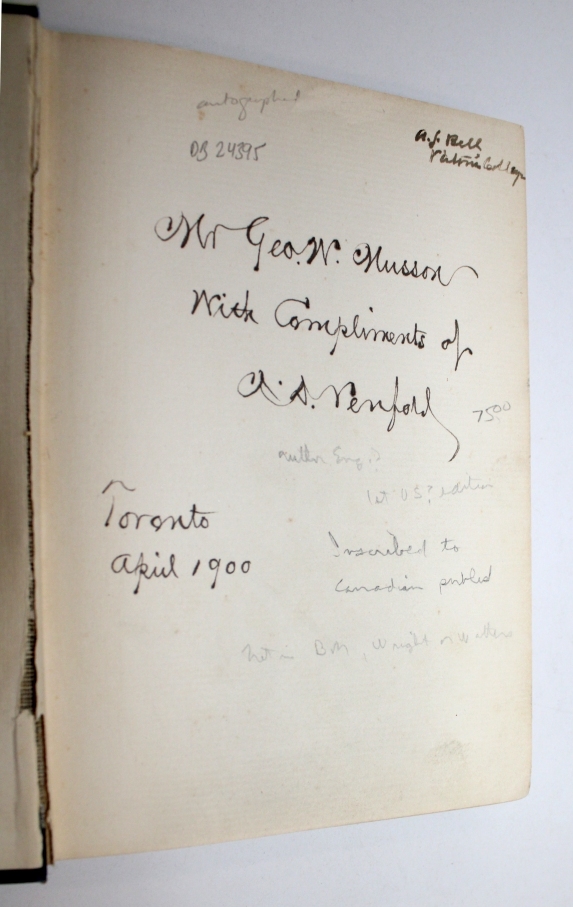 autographed
DB 24395
A.J. Bell
Victoria College
Mr Geo. W. Musson
With Compliments of
A. D. Penfold
75.00
author Eng.?
1st U.S.? edition
Toronto
April 1900
Inscribed to
Canadian publed
Not in BM, Wright or